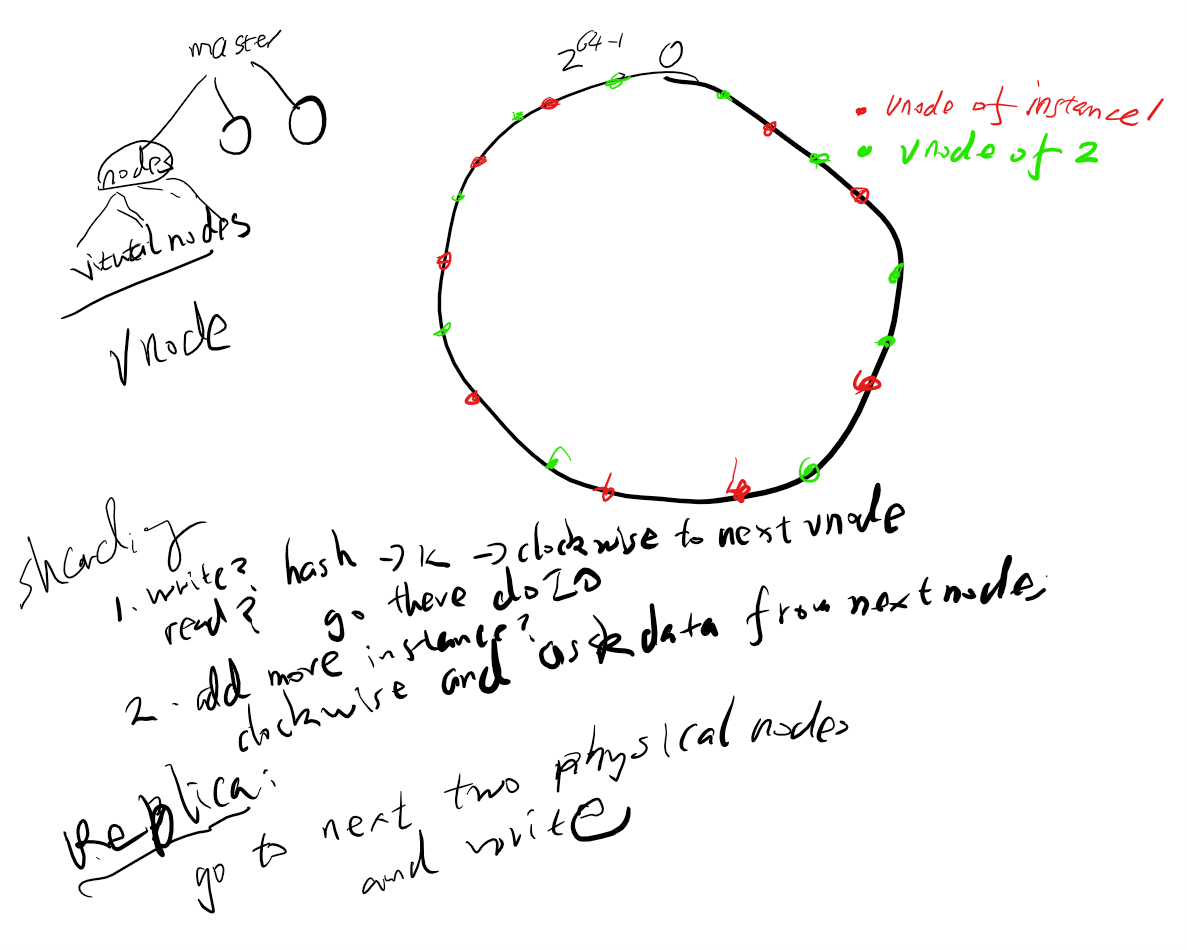 master
nodes
vitutal nodes
vnode
2^64-1
0
• vnode of instance1
• vnode of 2
sharding
1. write? hash -> k -> clockwise to next vnode
read? go there do IO
2. add more instance?
clockwise and ask data from next nodes
Replica:
go to next two physical nodes
and write